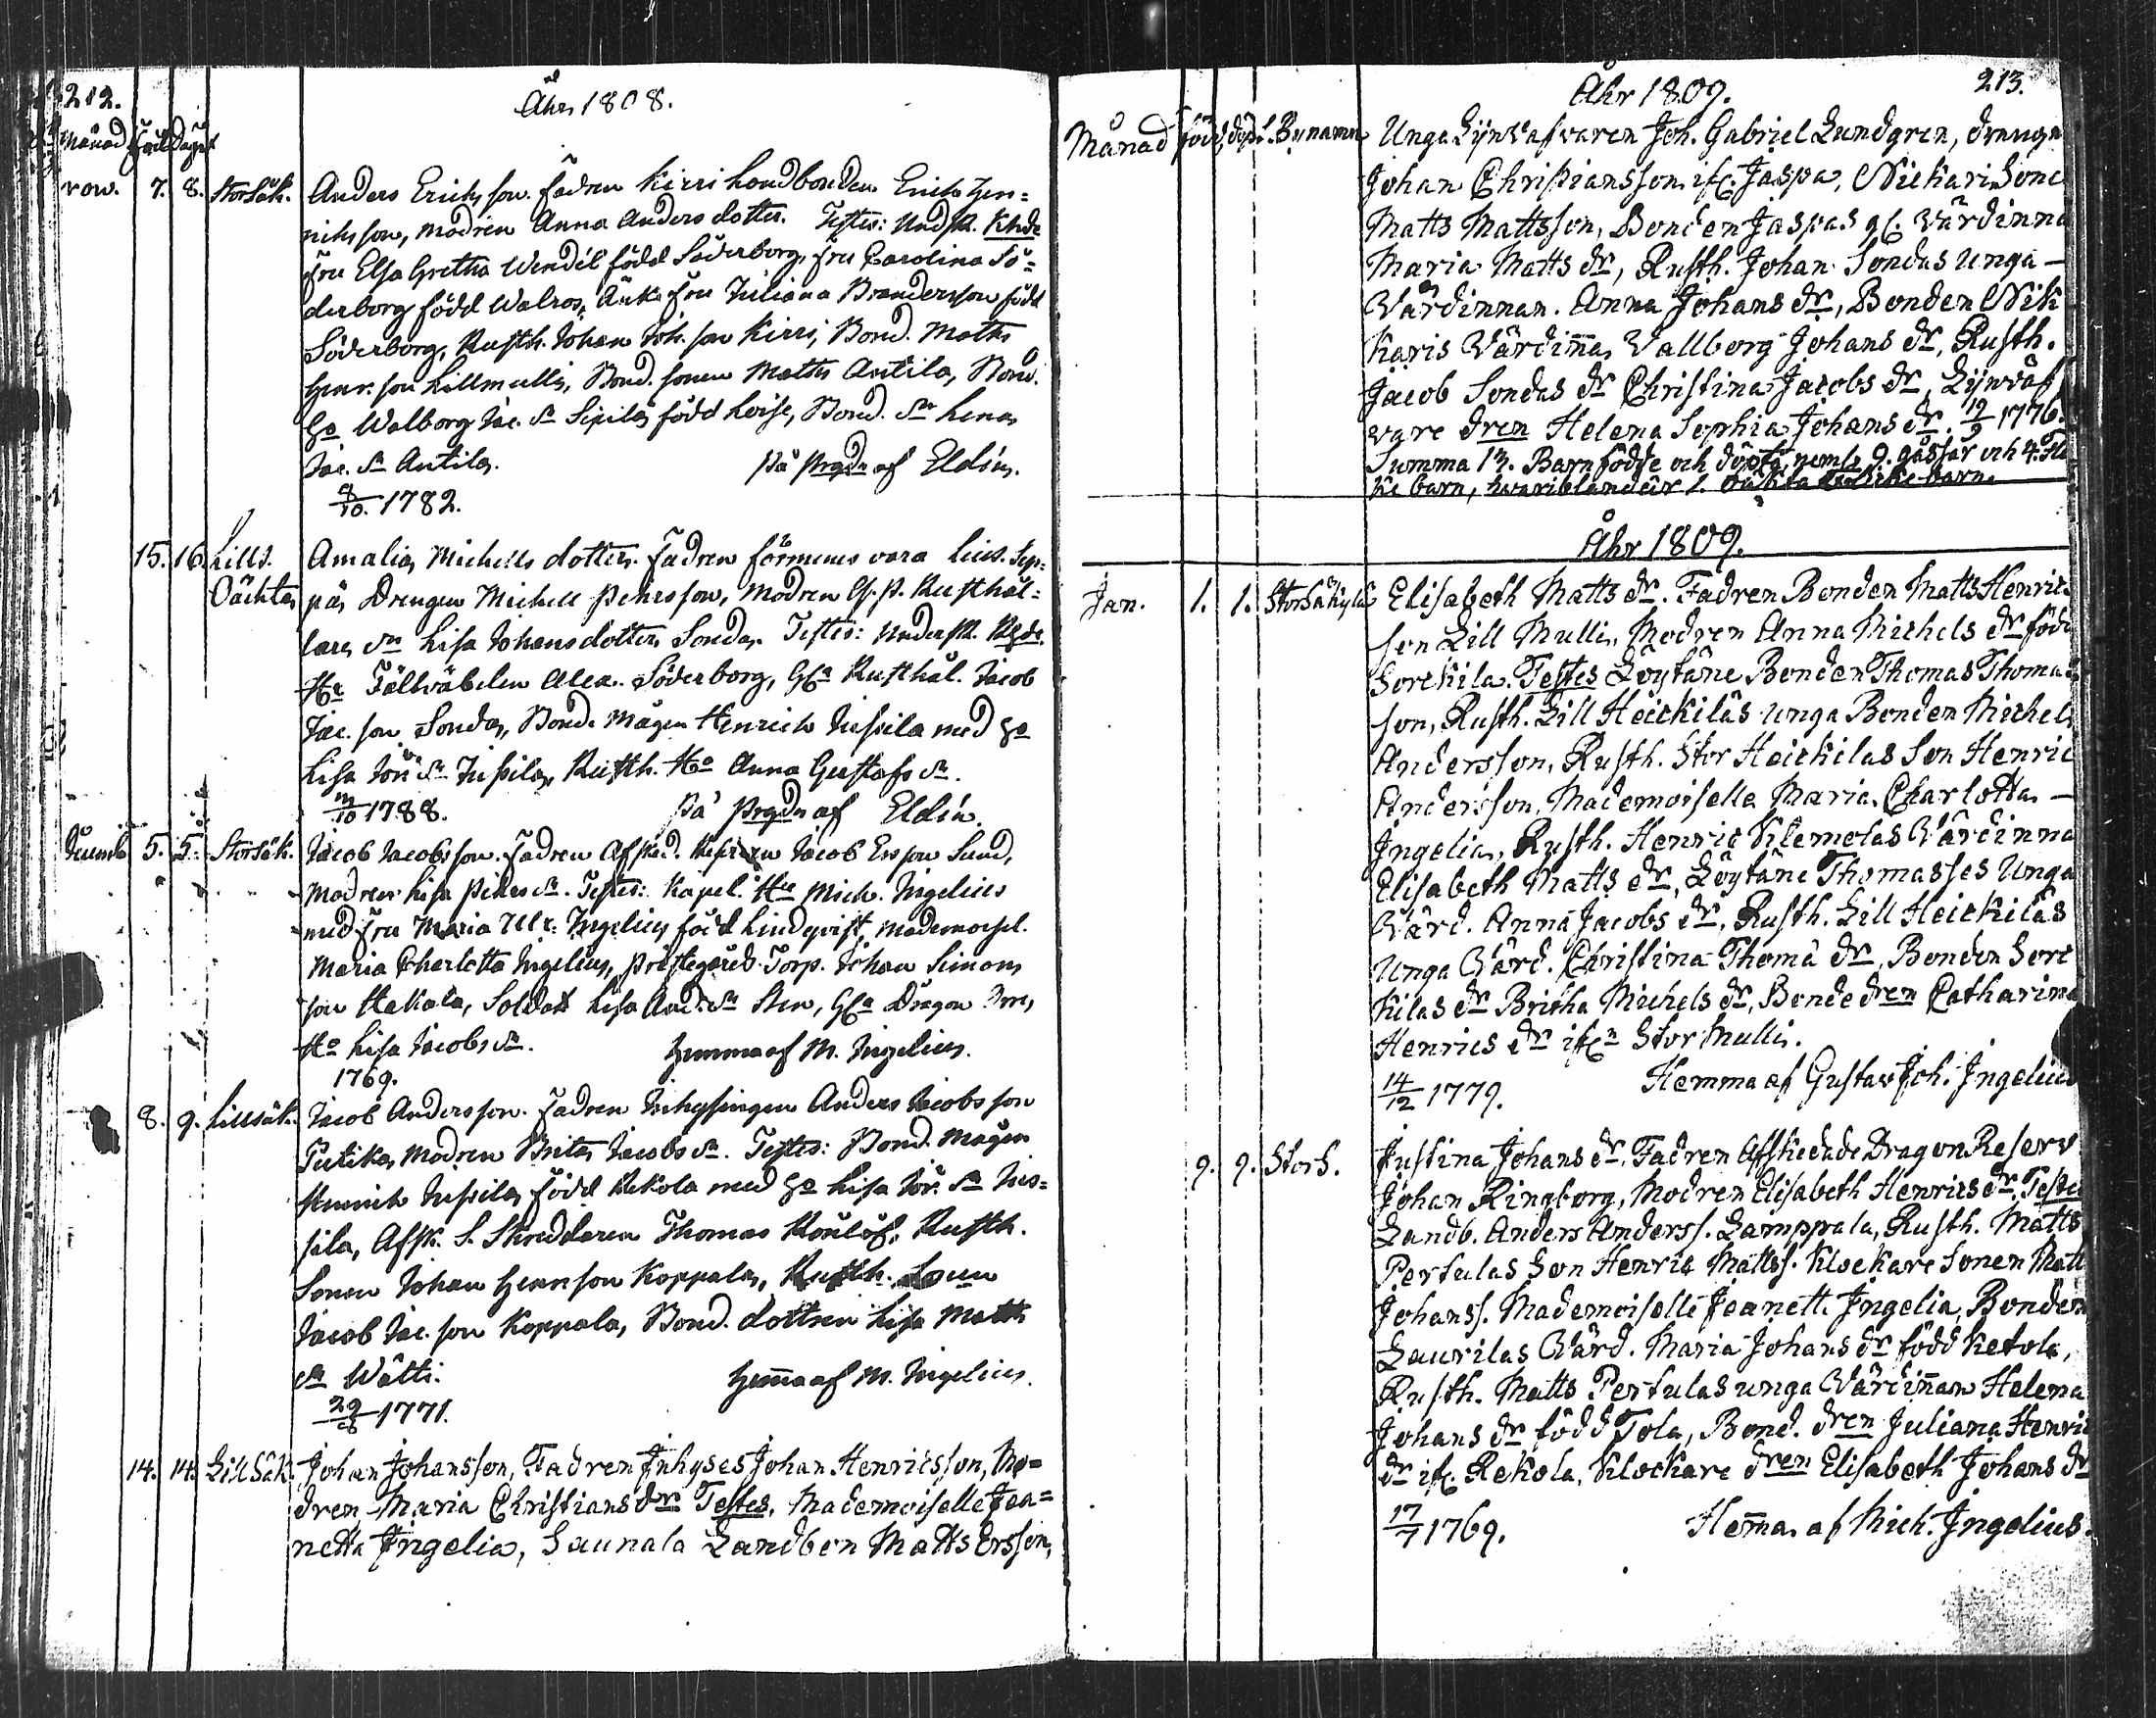 212.
Åhr 1808.
Månad Föd. Dagel
nov. 7. 8. Storsäk. Anders Erichsson. Fadren Kirri Landbonden Erich Hen=
richsson, modren Anna Andersdotter. Testes:
Fru Elsa Gretha Wendél född Söderborg, Fru Carolina Sö=
derborg född Walros, Änke Fru Juliana Brandersson född
Söderborg, Rusth. Johan Joh. son Kirri, Bond. Matts
Henr. son Lillmulli, Bond. sonen Matts Antila, Bond.
Ho Walborg Jac. dr Sipilä, född Loise, Bond. dr Lena
Jac. dr Antila. På Prgdn af Eldin.
8/10. 1782.
15. 16. Lills. Amalia, Michells dotter. Fadren förmenes vara Lius. Sep=
Oächta pä, Drengen Michell Pehrsson, Modren Rusthål=
lare dr Lisa Johansdotter Sonda. Testes:
Hr Fältväbelen Alex. Söderborg, Rusthål. Jacob
Jac. son Sonda, Bond. Mågen Henrich Jussila med Ho
Lisa dr Jussila, Rusth. Ho Anna Gustafs dr.
/10 1788. På Prgdn af Eldin.
5. 5. Storsäk. Jacob Jacobsson. Fadren Afsked. Jacob Ersson Sund,
Modren Lisa Pehrs dr. Testes: Kapel. Hr Mich. Ingelius
med Fru Maria Ulr. Ingelius född Lindqvist, Mademoisel.
Maria Charlotta Ingelius, Prestegårds Torp. Johan Simons
son Hakala, Soldat Lisa And. dr Sten, Dragon
Ho Lisa Jacobs dr. Hemma af M. Ingelius.
1769.
8. 9. Lillsäk. Jacob Andersson. Fadren Inhysingen Anders Jacobsson
Modren Brita Jacobs dr. Testes: Bond. Mågen
Henrich Jussila, född Rekola med Ho Lisa dr Jus=
sila, Afsk. S. Skreddaren Thomas Rusth.
Sonen Johan Henrsson Koppala, Rusth. Sonen
Jacob Jac. son Koppala, Bond. dottren Lisa Matts
dr Wätti. Hemma af M. Ingelius.
29/8 1771.
14. 14. Lill Säk. Johan Johansson, Fadren Inhyses Johan Henricsson, Mo=
dren Maria Christians dr Testes, Mademoiselle Jea=
netta Ingelia, Saunala Landbon Matts Ersson,
213.
Åhr 1809.
Månad Född, döpt. Bynamn Unga Lijnväfvaren Joh. Gabriel Lundgren, drengn
Johan Christiansson ifr. Jaspa, Nickari Sone
Matts Mattsson, Bonden Jaspas gl. Värdinna
Maria Matts dr, Rusth. Johan Sondas unga —
Värdinnan Anna Johans dr, Bonden Nik
karis Värdinna Vallborg Johans dr, Rusth.
Jacob Sondas dr Christina Jacobs dr, Lijnväf
vare dren Helena Sophia Johans dr. 19/9 1776.
Summa 13. Barn födde och döpta, neml. 9. gåssar och 4. Fli
ke barn, hvaribland är 1. oäkta barn.
Åhr 1809.
Jan. 1. 1. Storsäkylä Elisabeth Matts dr. Fadren Bonden Matts Henrics
son Lill Mulli, Modren Anna Michels dr född
Sorckila. Testes Löytäne Bonden Thomas Thomas
son, Rusth. Lill Heickiläs unga Bonden Michels
Andersson, Rusth. Stor Heickilas Son Henric
Andersson, Mademoiselle Maria Charlotta —
Ingelia, Rusth. Henric Klemolas Värdinna
Elisabeth Matts dr, Löytäne Thomasses Unga
Värd. Anna Jacobs dr, Rusth. Lill Heickilas
Unga Värd. Christina Thoma dr, Bonden Sorc
kilas dr Britha Michels dr, Bonde dren Catharina
Henrics dr ifr. Stor Mulli.
14/12 1779. Hemma af Gustav Joh. Ingelius
9. 9. Stors. Justina Johans dr, Fadren Afskedade Dragon Reserv
Johan Ringborg, Modren Elisabeth Henrics dr. Testes
Landb. Anders Anderss. Lamppala, Rusth. Matts
Pertulas Son Henric Mattss. Klockare Sonen Matt
Johanss. Mademoiselle Jeanett. Ingelia, Bonden
Laurilas Värd. Maria Johans dr född Ketola,
Rusth. Matts Pertulas unga Värdinnan Helena
Johans dr född Tola, Bond. dren Juliana Henric
dr ifr. Rekola, Klockare dren Elisabeth Johans dr
17/7 1769. Hemma af Mich. Ingelius.